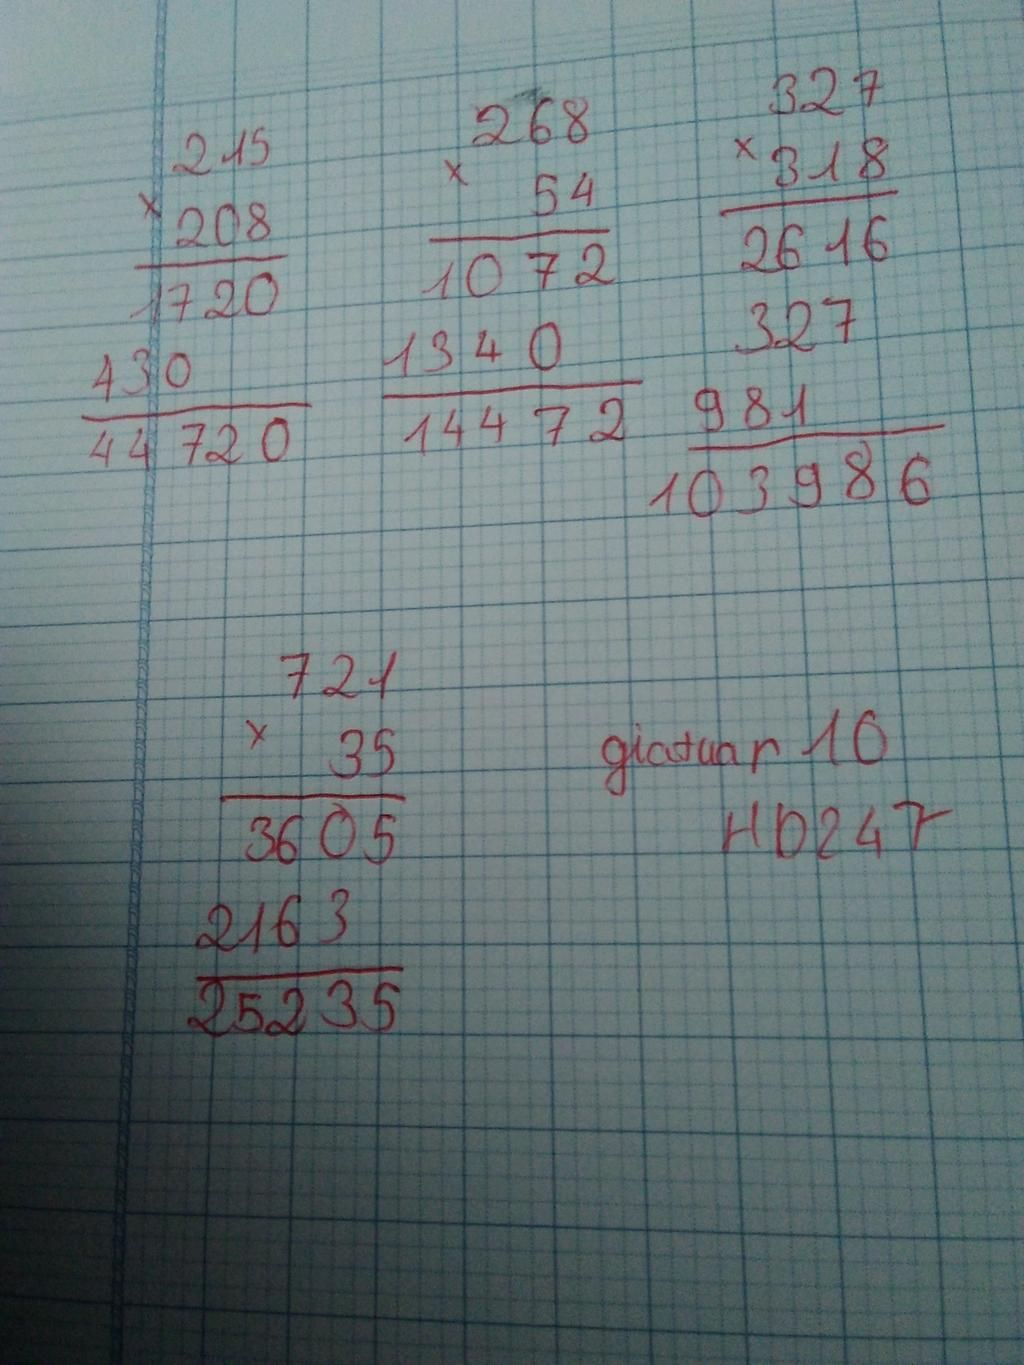 215
× 208
1720
430
44720
268
× 54
1072
1340
14472
327
× 318
2616
327
981
103986
721
× 35
3605
2163
25235
giatuan 10
HD247